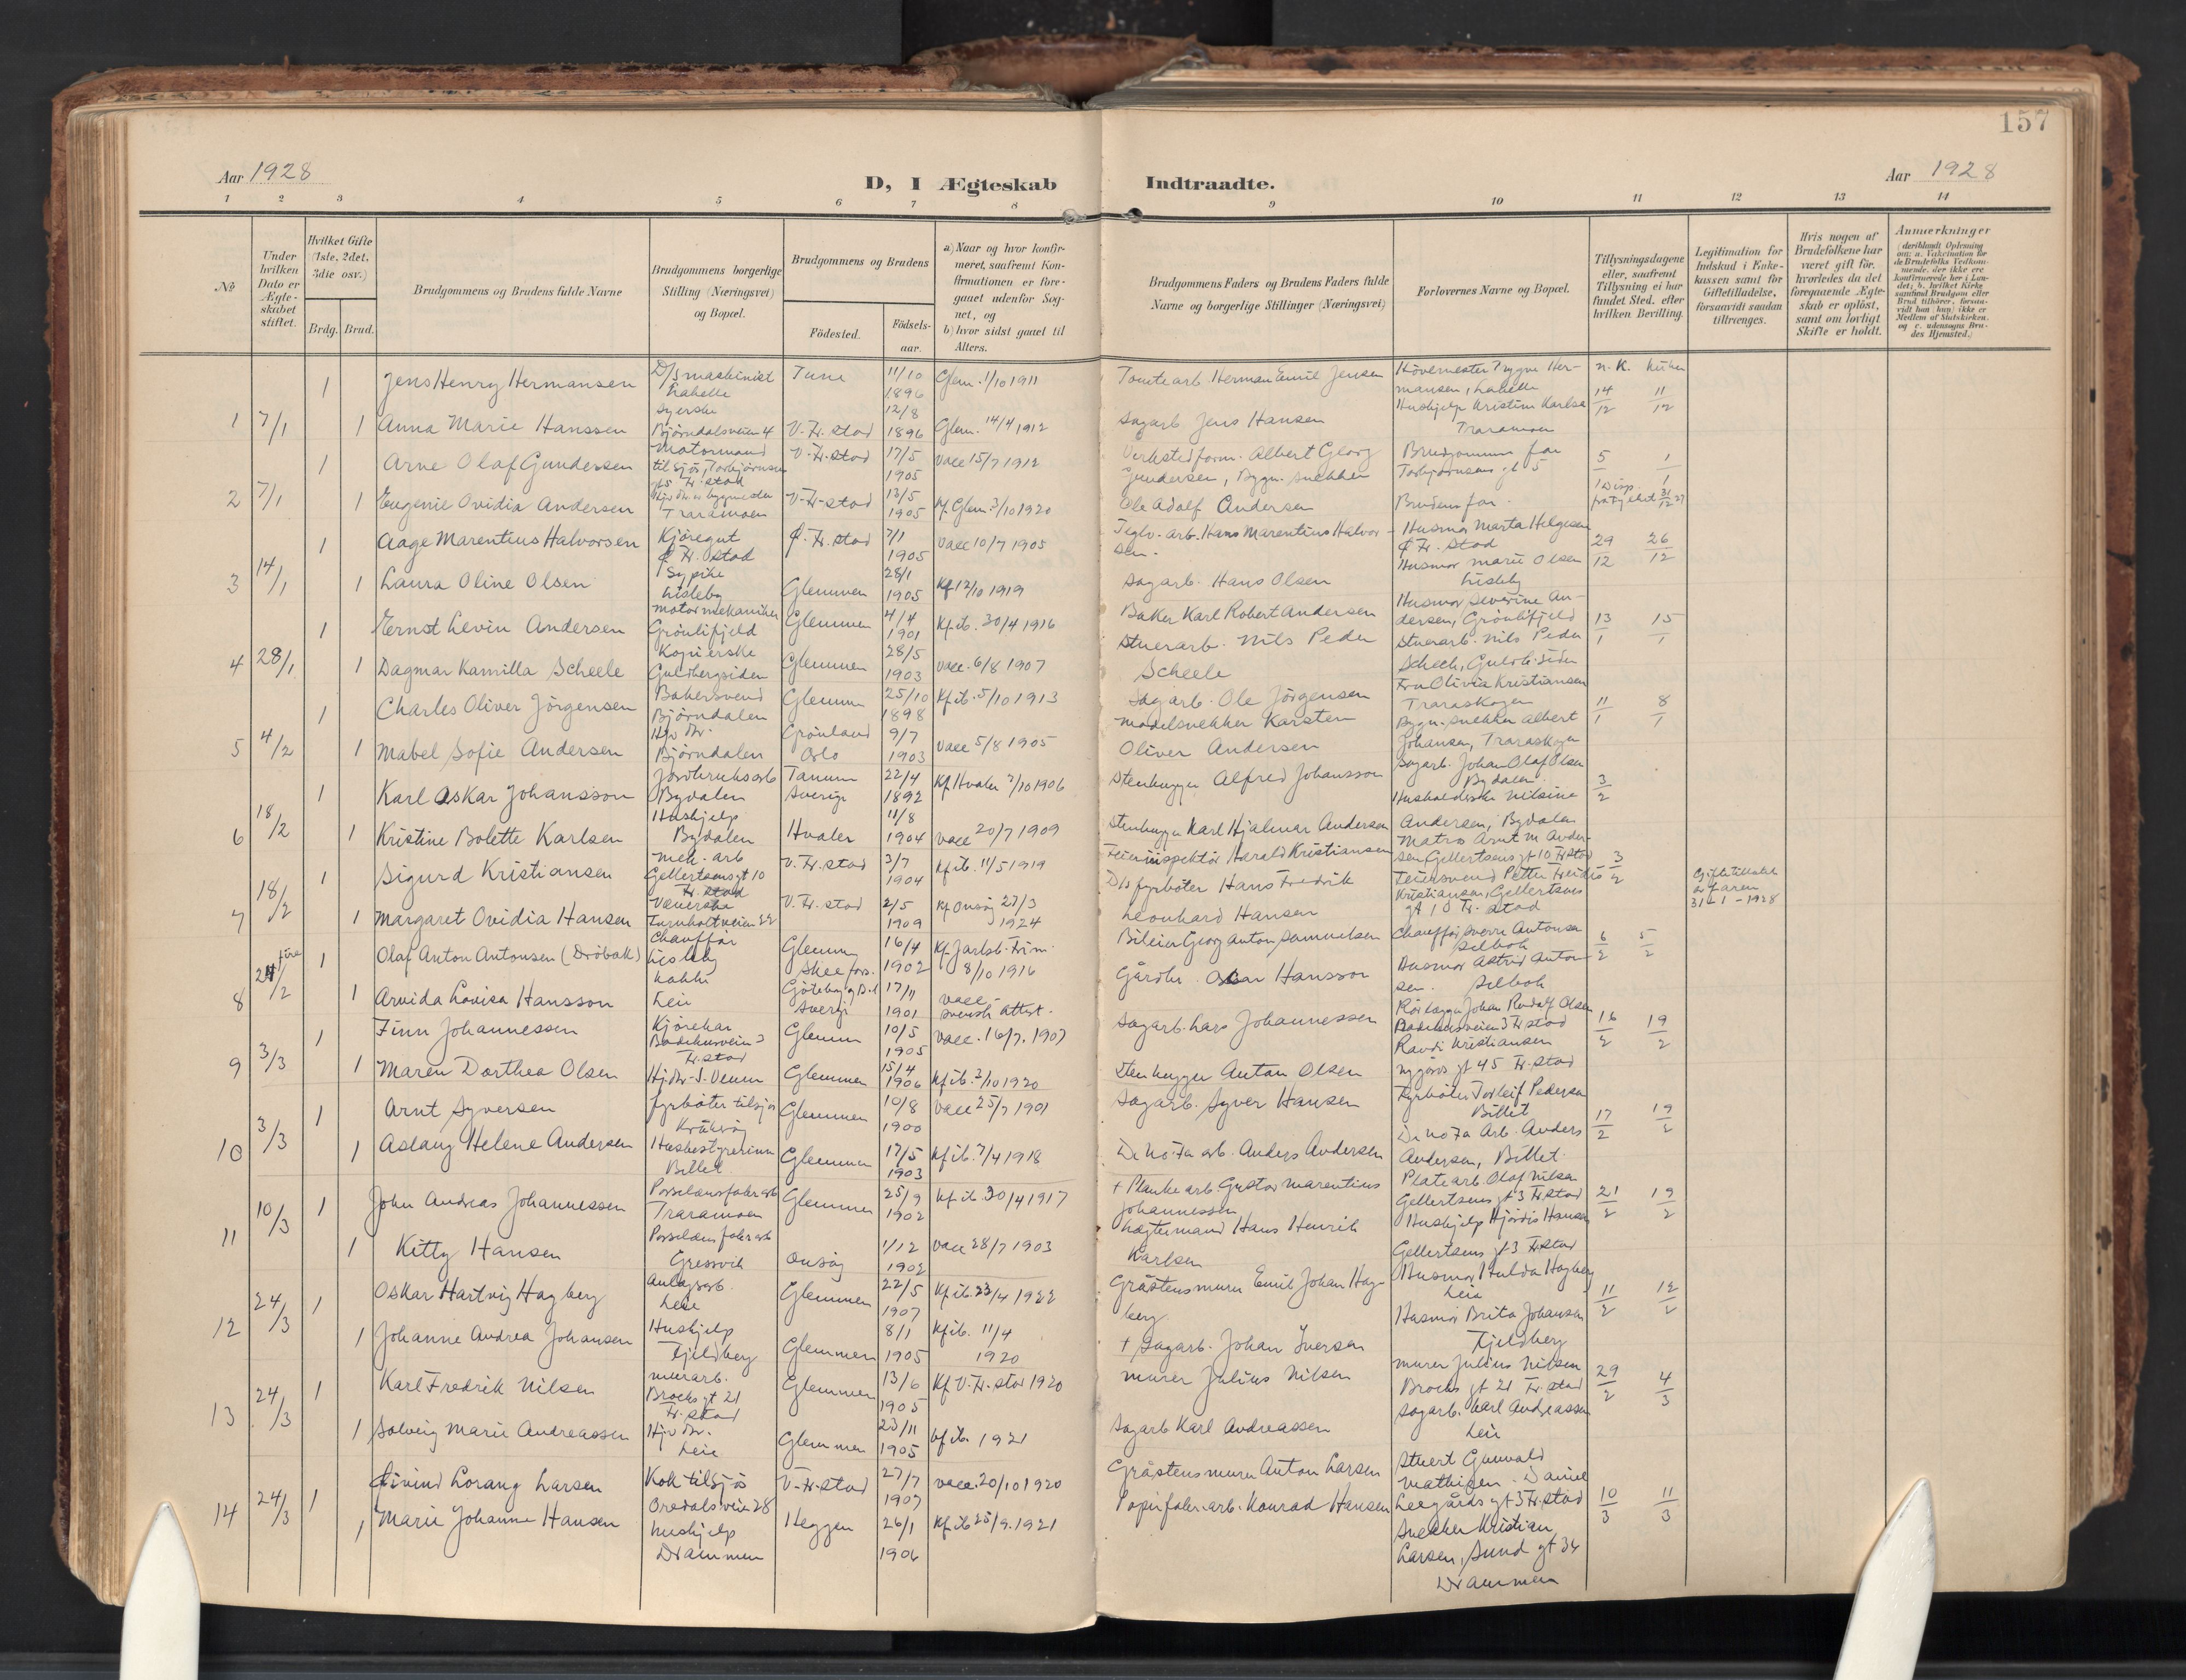 157
Aar 1928
D, I Ægteskab Indtraadte.
Aar 1928
1 2 3 4 5 6 7 8 9 10 11 12 13 14
No
Under hvilken Dato er Ægteskabet stiftet.
Hvilket Gifte (1ste, 2det, 3die osv.)
Brdg. Brud.
Brudgommens og Brudens fulde Navne
Brudgommens borgerlige Stilling (Næringsvei) og Bopæl.
Brudgommens og Brudens
Födested.
Födselsaar.
a) Naar og hvor konfirmeret, saafremt Konfirmationen er foregaaet udenfor Sognet, og
b) hvor sidst gaaet til Alters.
Brudgommens Faders og Brudens Faders fulde Navne og borgerlige Stillinger (Næringsvei)
Forlovernes Navne og Bopæl.
Tillysningsdagene eller, saafremt Tillysning ei har fundet Sted, efter hvilken Bevilling.
Legitimation for Indskud i Enkekassen samt for Giftetilladelse, forsaavidt saadan tiltrænges.
Hvis nogen af Brudefolkene har været gift för, hvorledes da det foregaaende Ægteskab er oplöst, samt om lovligt Skifte er holdt.
Anmerkninger
1 7/1
1 Jens Henry Hermansen D/S maskinist Labelle Tune 11/10 1896 Glem. 1/10 1911 Tomtearb Herman Emil Jensen Hövlemester Trygve Hermansen, Labelle 14/12 11/12
1 Anna Marie Hanssen Syerske Bjørndalsveien 4 V. Fr. stad 12/8 1896 Glem. 14/4 1912 Sagarb Jens Hansen Hushjelp Kristine Karlsen Traramoen
2 7/1
1 Arne Olaf Gundersen Motormand til sjøs, Torbjørnsens gt 5 Fr. stad V. Fr. stad 17/5 1905 Vacc 15/7 1912 Verkstedform. Albert Georg Gundersen, Bygn. snekker Brudgommens far Torbjørnsens gt 5 5/1 1/1
1 Eugenie Ovidia Andersen Traramoen V. Fr. stad 13/5 1905 Kf. Glem. 3/10 1920 Ole Adolf Andersen Brudens far.
3 14/1
1 Aage Marentius Halvorsen Kjöregut Ø. Fr. stad Ø. Fr. stad 7/1 1905 Vacc 10/7 1905 Teglv. arb. Hans Marentius Halvorsen. Husmor Marta Helgesen Ø Fr. stad 29/12 26/12
1 Laura Oline Olsen Sypike Lisleby Glemmen 28/1 1905 Kf 12/10 1919 Sagarb. Hans Olsen Husmor Marie Olsen Lisleby
4 28/1
1 Ernst Levin Andersen Motormekaniker Grönlifjeld Glemmen 4/4 1901 Kf. ib. 30/4 1916 Baker Karl Robert Andersen Husmor Severine Andersen, Grönlifjeld 13/1 15/1
1 Dagmar Kamilla Scheele Kopierske Guldbergsiden Glemmen 28/5 1903 Vacc. 6/8 1907 Stuerarb. Nils Peder Scheele Stuerarb. Nils Peder Scheele, Guldb. siden
5 4/2
1 Charles Oliver Jörgensen Bakersvend Bjørndalen Glemmen 25/10 1898 Kf ib. 5/10 1913 Sagarb. Ole Jörgensen Fru Olivia Kristiansen Traraskogen 11/1 8/1
1 Mabel Sofie Andersen Bjørndalen Grönland Oslo 9/7 1903 Vacc 5/8 1905 Modelsnekker Karsten Oliver Andersen Bygn. snekker Albert Johansen, Traraskogen
6 18/2
1 Karl Oskar Johansson Jordbruksarb Bydalen Tanum Sverige 22/4 1892 Kf Hvaler 7/10 1906 Stenhugger Alfred Johansson Sagarb. Johan Olaf Olsen Bydalen. 3/2
1 Kristine Bolette Karlsen Hushjelp Bydalen Hvaler 11/8 1904 Vacc 20/7 1909 Stenhugger Karl Hjalmar Andersen Husholderske Nilsine Andersen, Bydalen
7 18/2
1 Sigurd Kristiansen Mek. arb Gellertsens gt 10 Fr. stad V. Fr. stad 3/7 1904 Kf ib. 11/5 1919 Feierinspektör Harald Kristiansen Matros Arnt M. Andersen Gellertsens gt 10 Fr stad 3/2
1 Margaret Ovidia Hansen Veverske V. Fr. stad 2/5 1909 Kf Onsøy 27/3 1924 D/s fyrböter Hans Fredrik Leonhard Hansen Feiersvend Petter Kristiansen, Gellertsens gt 10 Fr. stad
Giftetilladelse av faren 31-1-1928
8 24/2
1 Olaf Anton Antonsen (Dröbak) Chauffør Lisleby Glemmen 16/4 1902 Kf. Jarlsb. Frim. 8/10 1916 Bileier Georg Anton Samuelsen Chauffør Sverre Antonsen Selbak 6/2 5/2
1 Arvida Lovisa Hansson Kokke Leie Skee fors. Göteborg og B.l Sverige 17/11 1901 vacc - svensk attest. Gårdbr. Oskar Hansson Husmor Astrid Antonsen. Selbak
9 3/3
1 Finn Johannessen Kjörekar Badehusveien 3 Fr. stad Glemmen 10/5 1905 Vacc. 16/7. 1907 Sagarb. Lars Johannessen Rörlegger Johan Rudolf Olsen Badehusveien 3 Fr stad 16/2 19/2
1 Maren Dorthea Olsen Hj. dtr. S. Veum Glemmen 15/4 1906 Kf ib. 3/10 1920 Stenhugger Anton Olsen Randi Kristiansen Nygårds gt 45 Fr. stad
10 3/3
1 Arnt Syversen Fyrböter tilsjøs Kråkerøy Glemmen 10/8 1900 Vacc 25/7 1901 Sagarb. Syver Hansen Fyrböter Torleif Pedersen Billet 17/2 19/2
1 Aslaug Helene Andersen Husbestyrerinne Billet Glemmen 17/5 1903 Kf ib. 7/4 1918 De No Fa arb. Anders Andersen De No Fa Arb. Anders Andersen, Billet
11 10/3
1 John Andreas Johannessen Porselænsfabr arb Traramoen Glemmen 25/9 1902 Kf. ib 30/4 1917 + Planke arb. Gustav Marentius Johannessen Platearb. Olaf Nilsen Gellertsens gt 3 Fr. stad 21/2 19/2
1 Kitty Hansen Porselæns fabr arb Gressvik Onsøy 1/12 1902 Vacc 28/7 1903 Lægtemand Hans Henrik Karlsen Hushjelp Hjördis Hansen Gellertsens gt 3 Fr stad
12 24/3
1 Oskar Hartvig Hagberg Anlægsarb. Leie Glemmen 22/5 1907 Kf ib. 23/4 1922 Gråstensmurer Emil Johan Hagberg Husmor Hulda Hagberg Leie 11/2 12/2
1 Johanne Andrea Johansen Hushjelp Fjeldberg Glemmen 8/1 1905 Kf ib. 11/4 1920 + Sagarb. Johan Iversen Husmor Brita Johansen Fjeldberg
13 24/3
1 Karl Fredrik Nilsen Murarb. Brochs gt 21 Fr. stad Glemmen 13/6 1905 Kf V. Fr. stad 1920 Murer Julius Nilsen Murer Julius Nilsen Brochs gt 21 Fr. stad 29/2 4/3
1 Solveig Marie Andreassen Leie Glemmen 23/11 1905 kf ib. 1921 Sagarb Karl Andreassen Sagarb. Karl Andreassen Leie
14 24/3
1 Eivind Lorang Larsen Kok tilsjøs Oredalsveien 28 V. Fr. stad 27/7 1907 vacc. 20/10 1920 Gråstensmurer Anton Larsen Stuert Gunvald Mathisen. Daniel Leegårds gt 3 Fr. stad 10/3 11/3
1 Marie Johanne Hansen Hushjelp Drammen Heggen 26/1 1906 Kf. ib 25/9. 1921 Papirfabr. arb. Konrad Hansen Snekker Kristian Larsen, Sund gt 34 Drammen